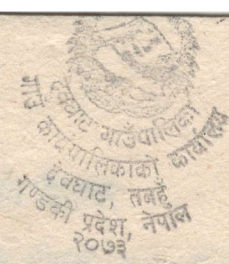 देवघाट गाउँपालिका
गाउँ कार्यपालिकाको कार्यालय
देवघाट, तनहुँ
गण्डकी प्रदेश, नेपाल
२०७३